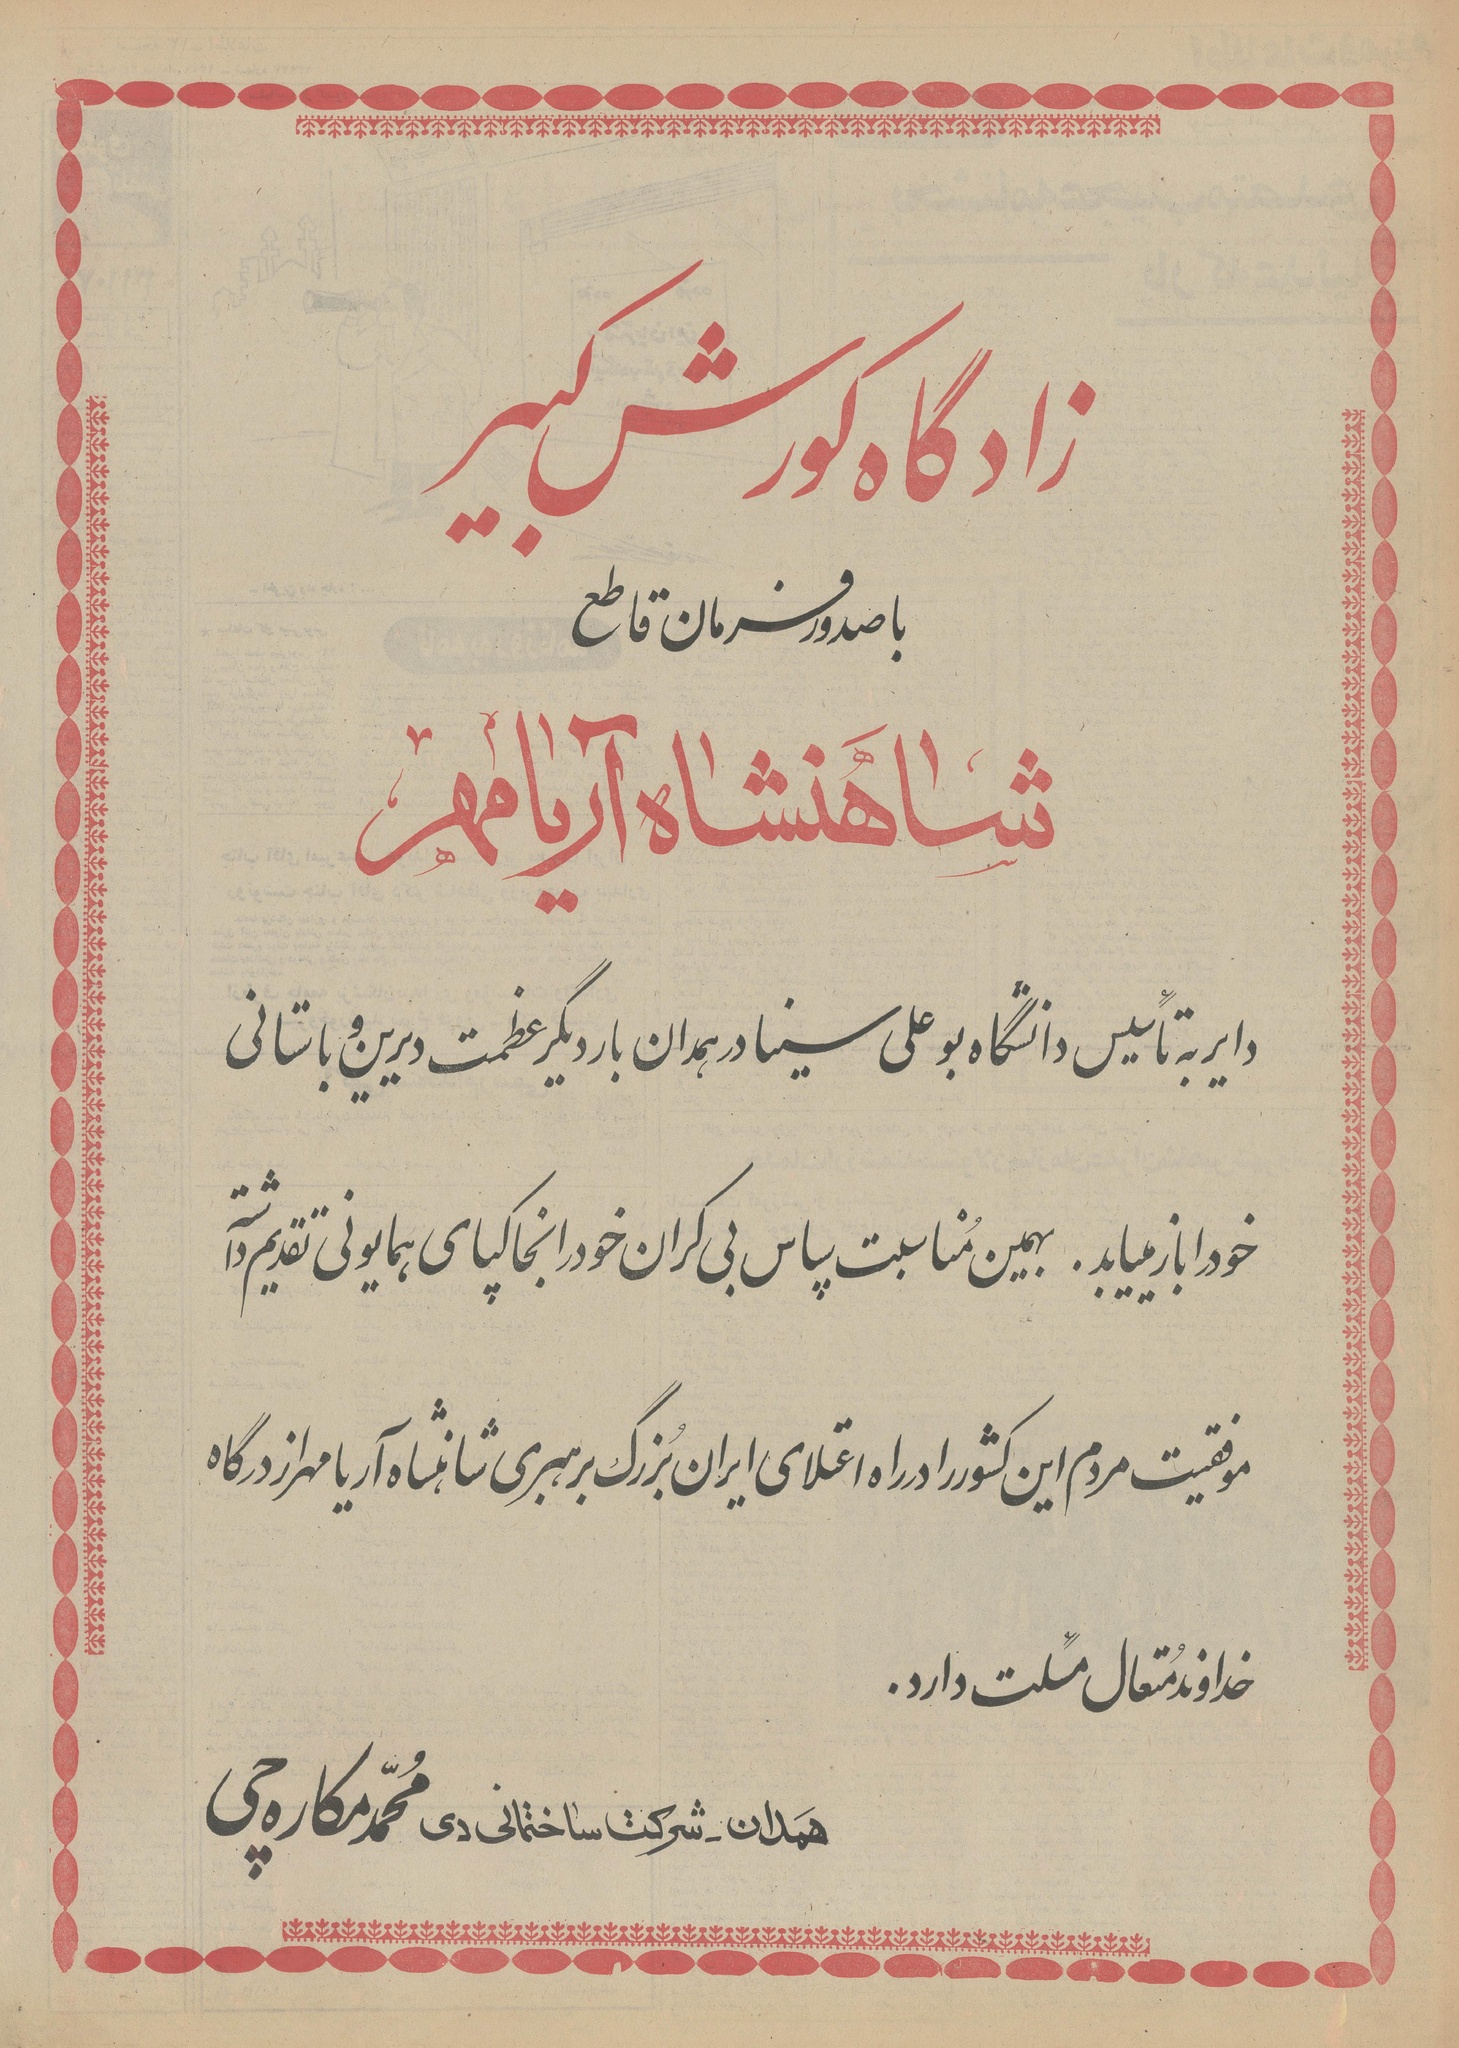 زادگاه کورش کبیر
با صدور فرمان قاطع
شاهنشاه آریامهر
دایر به تأسیس دانشگاه بوعلی سینا در همدان بار دیگر عظمت دیرین و باستانی
خود را باز مییابد. بهمین مُناسبت سپاس بی کران خود را بخاکپای همایونی تقدیم داشته
موفقیت مردم این کشور را در راه اعتلای ایران بُزرگ برهبری شاهنشاه آریامهر از درگاه
خداوند مُتعال مسٔلت دارد.
همدان - شرکت ساختمانی دی مُحمّد مکاره چی